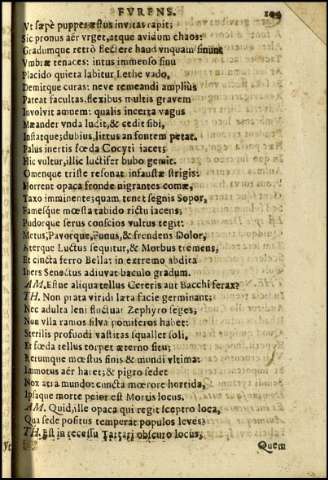 FVRENS.
Vt sæpè puppes æstus invitas rapit:
Sic pronus aër vrget, atque avidum chaos:
Gradumque retrò flectere haud vnquam sinunt
Vmbræ tenaces: intus immenso sinu
Placido quieta labitur Lethe vado,
Demitque curas: neve remeandi amplius
Pateat facultas, flexibus multis gravem
Involvit amnem: qualis incerta vagus
Mæander vnda ludit, & cedit sibi,
Instatque; dubius, littus an fontem petat.
Palus inertis fœda Cocyti iacet;
Hic vultur, illic luctifer bubo gemit.
Omenque triste resonat infaustæ strigis:
Horrent opaca fronde nigrantes comæ,
Taxo imminente; quam tenet segnis Sopor,
Famesque mœsta tabido rictu iacens;
Pudorque serus conscios vultus tegit:
Metus, Pavorque, Funus, & frendens Dolor,
Aterque Luctus sequitur, & Morbus tremens,
Et cincta ferro Bella: in extremo abdita
Iners Senectus adiuvat baculo gradum.
AM. Estne aliqua tellus Cereris aut Bacchi ferax?
TH. Non prata viridi læta facie germinant:
Nec adulta leni fluctuat Zephyro seges;
Non vlla ramos silva pomiferos habet:
Sterilis profundi vastitas squallet soli,
Et fœda tellus torpet æterno situ;
Rerumque mœstus finis & mundi vltima:
Immotus aër hæret; & pigro sedet
Nox atra mundo: cuncta mœrore horrida,
Ipsaque morte peior est Mortis locus.
AM. Quid, ille opaca qui regit sceptro loca,
Qua sede positus temperat populos leves?
TH. Est in recessu Tartari obscuro locus,
Quem